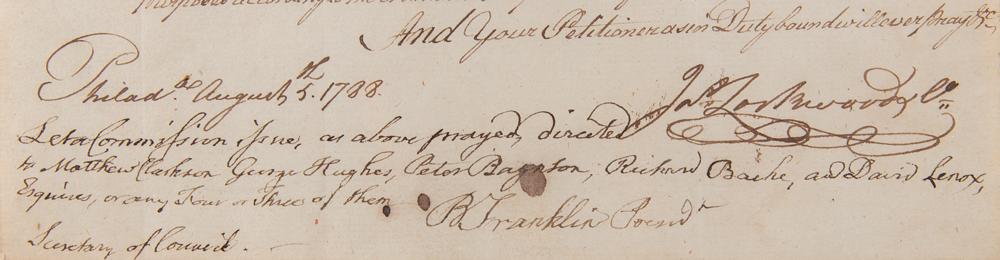 And Your Petitioner as in Duty bound will ever pray &c
Philad.ª August 5.th 1788.
Jas. Lockwood & Co.
Let a Commission issue, as above prayed, directed
to Matthew Clarkson George Hughes, Peter Baynton, Richard Bache, and David Lenox,
Esquires, or any Four or Three of them
B Franklin Presidt
Secretary of Council.